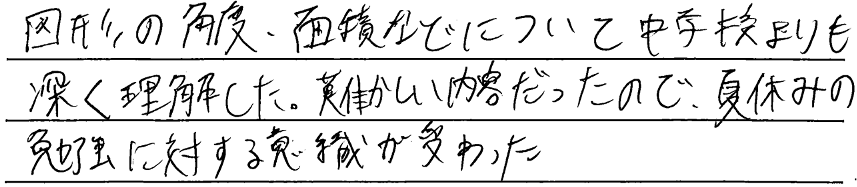 図形の角度、面積などについて中学校よりも
深く理解した。難しい内容だったので、夏休みの
勉強に対する意識が変わった